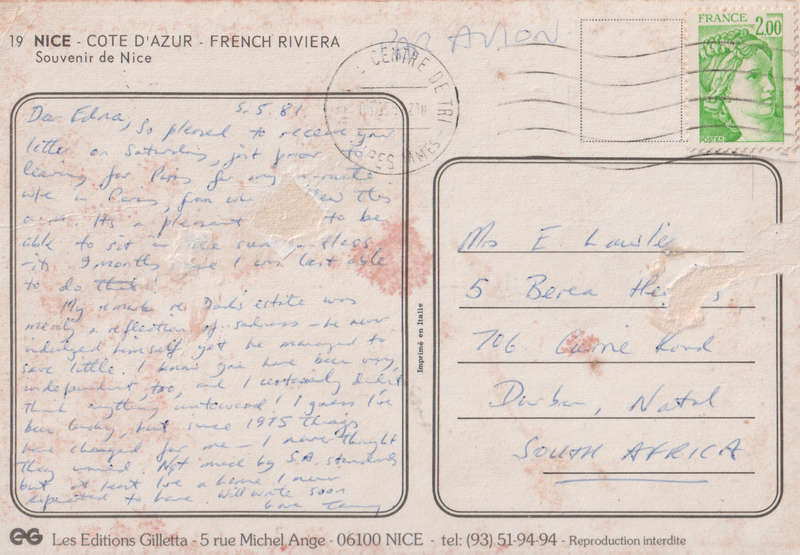 19 NICE - COTE D'AZUR - FRENCH RIVIERA
Souvenir de Nice
PAR AVION
FRANCE
2.00
POSTES
CENTRE DE TRI
5.5.81
Dear Edna, So pleased to receive your
letter on Saturday, just prior to
leaving for Paris for my
in Paris, from this
It's a pleasant to be
able to sit in the sun
9 months I was last able
to do
My remark re Dad's estate was
merely a reflection of sadness - he never
indulged himself yet he managed to
save little. I know you have been very
independent, too, and I certainly didn't
think anything untoward! I guess I've
been lucky, but since 1975 things
have changed for me - I never thought
they would. Not much by S.A. standards
but at least I've a home I never
expected to have. Will write soon
Love
Mrs E.
5 Berea
706 Currie Road
Durban, Natal
SOUTH AFRICA
Imprimé en Italie
EG Les Editions Gilletta - 5 rue Michel Ange - 06100 NICE - tel: (93) 51-94-94 - Reproduction interdite